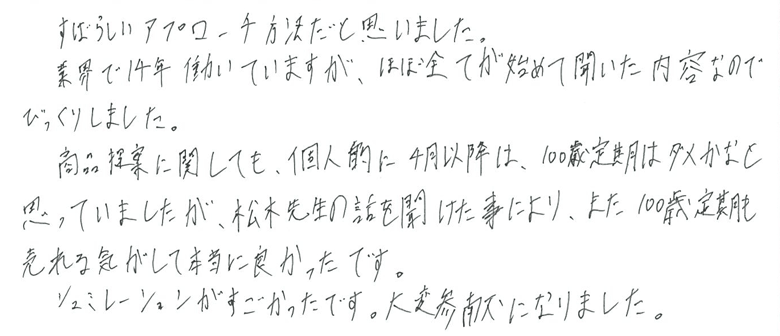 すばらしいアプローチ方法だと思いました。
業界で14年働いていますが、ほぼ全てが始めて聞いた内容なので
びっくりしました。
商品提案に関しても、個人的に4月以降は、100歳定期はダメかなと
思っていましたが、松木先生の話を聞けた事により、また100歳定期も
売れる気がして本当に良かったです。
シュミレーションがすごかったです。大変参考になりました。